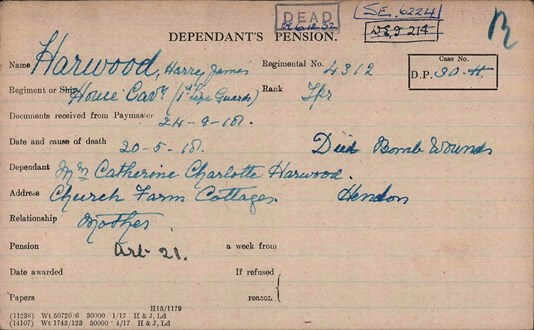 DEAD
S.E. 6224
DEPENDANT'S PENSION.
Name Harwood, Harry James Regimental No. 4312
Case No.
D.P. 30. H
Regiment or Ship House Cavy (1st Life Guards) Rank Tpr
Documents received from Paymaster 24-9-18.
Date and cause of death 20-5-18. Died Bomb Wounds
Dependant Mrs Catherine Charlotte Harwood.
Address Church Farm Cottages. Hendon
Relationship Mother
Pension Art 21. a week from
Date awarded If refused
Papers reason
H15/1179
(11238) Wt 50720/6 30000 1/17 H & J, Ld
(14107) Wt 1743/123 50000 4/17 H & J, Ld